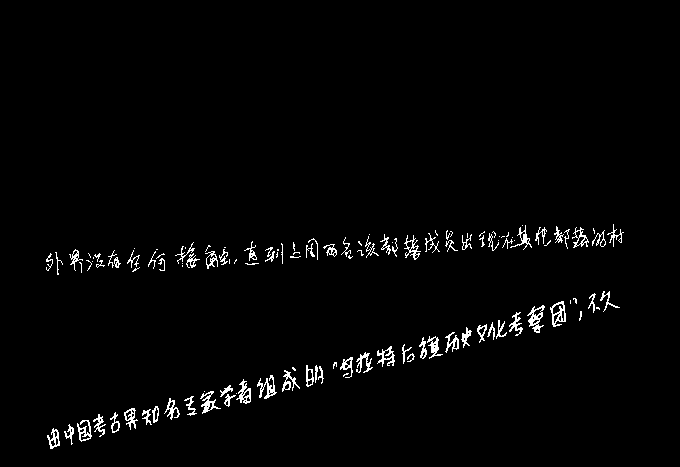 外界没有任何接触,直到上周两名该部落成员出现在其他部落的村
由中国考古界知名专家学者组成的“乌拉特后旗历史文化考察团”,不久